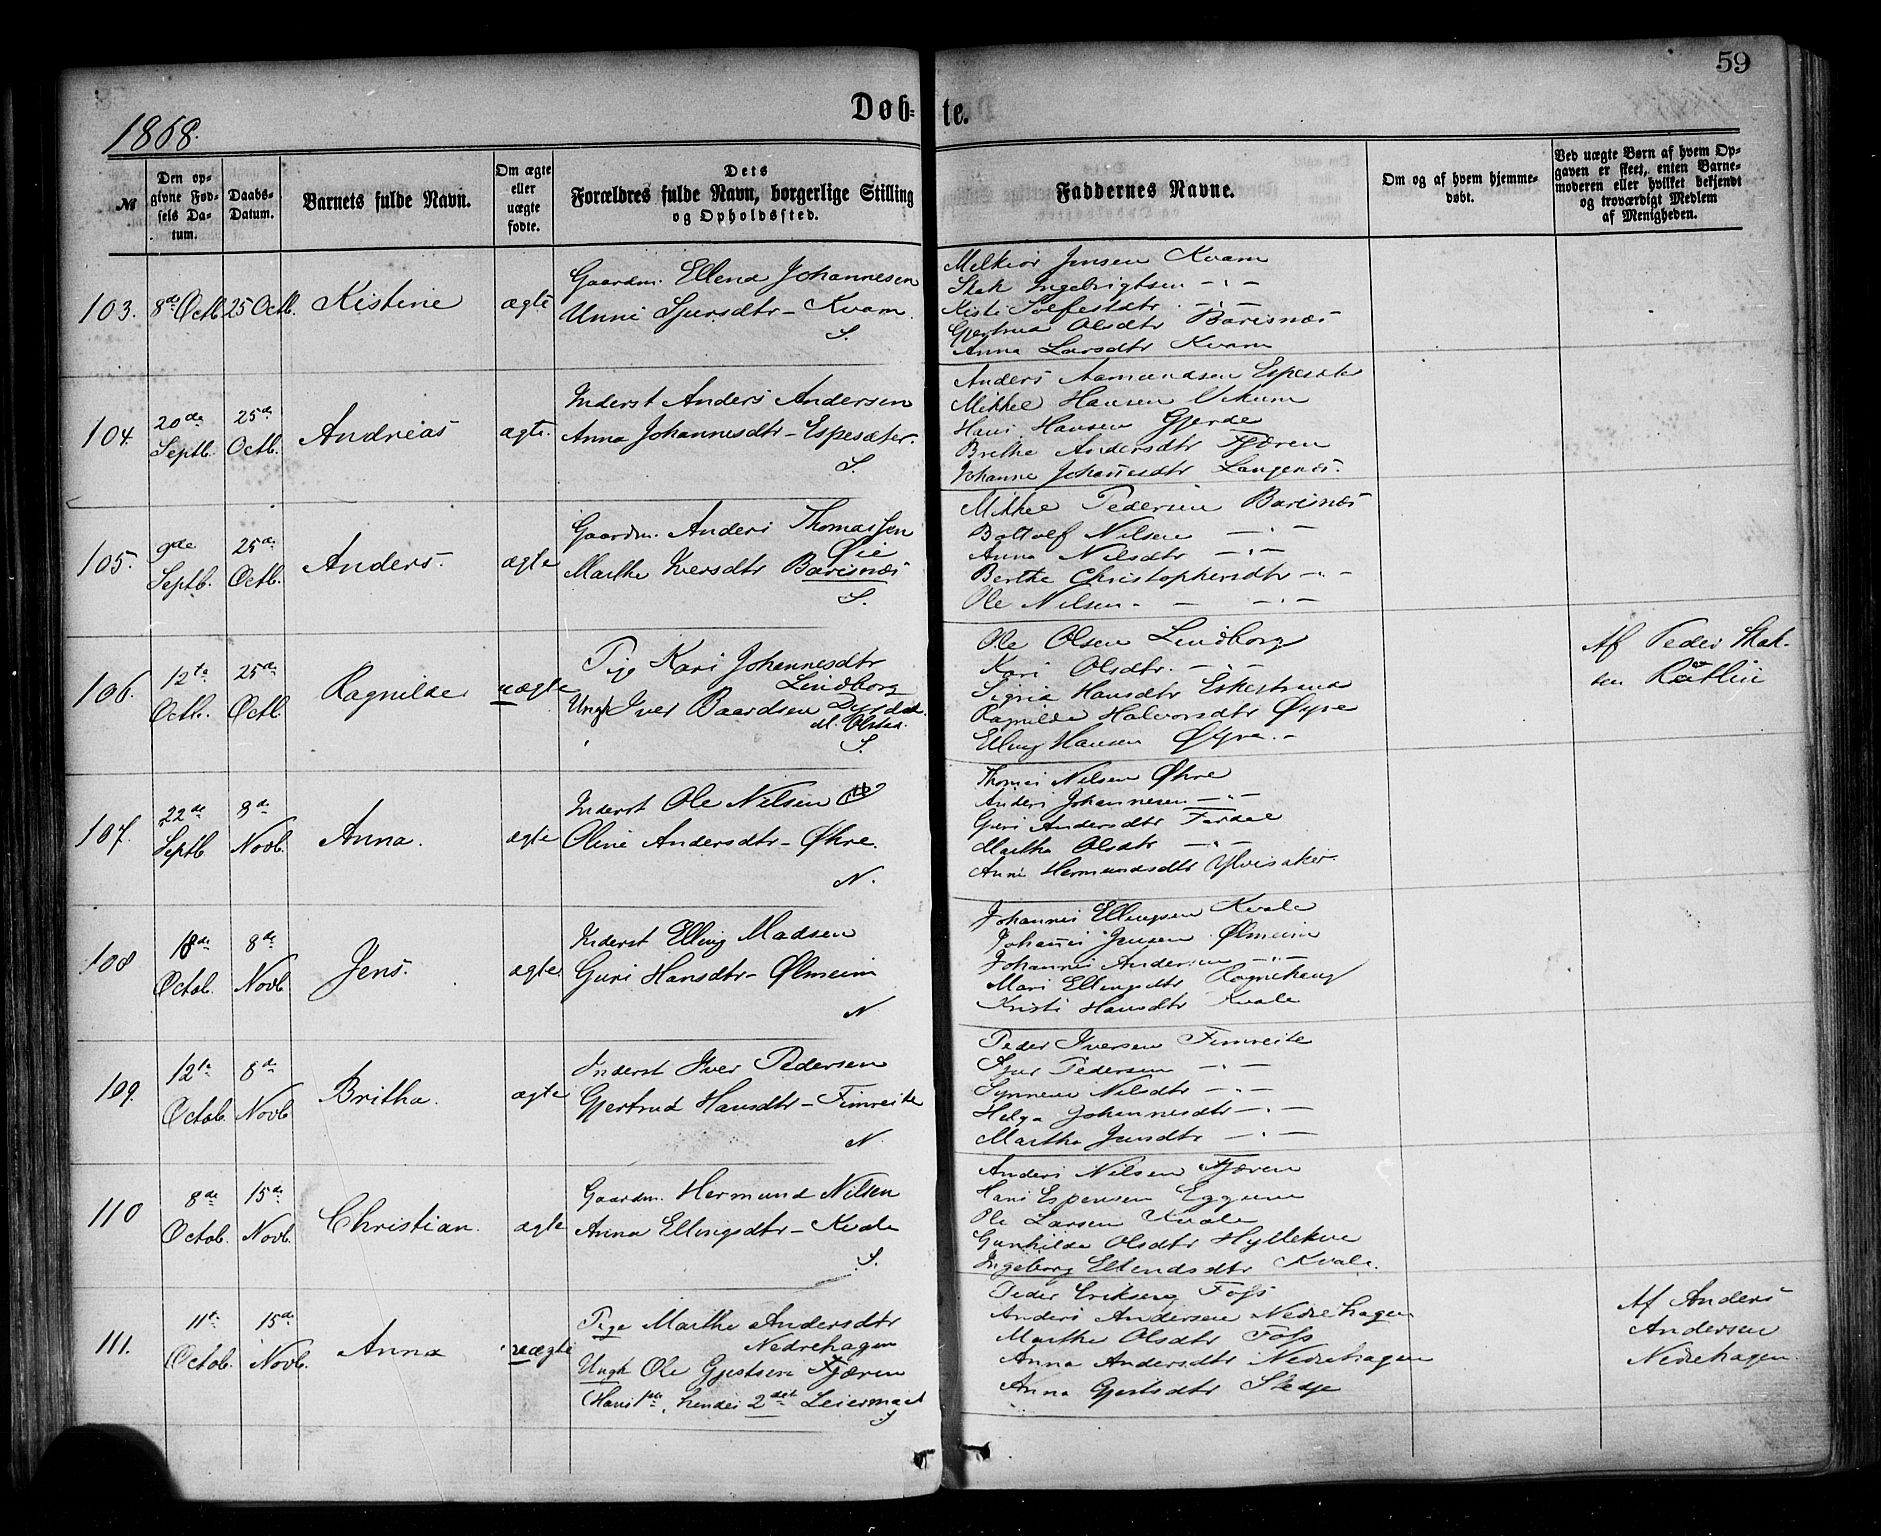 59
Døb- te.
1868.
№
Den op-
givne Fød-
sels Da-
tum.
Daabs-
Datum.
Barnets fulde Navn.
Om ægte
eller
uægte
fødte.
Dets
Forældres fulde Navn, borgerlige Stilling
og Opholdssted.
Faddernes Navne.
Om og af hvem hjemme-
døbt.
Ved uægte Børn af hvem Op-
gaven er skeet, enten Barne-
moderen eller hvilket bekjendt
og troværdigt Medlem
af Menigheden.
103. 8de Octb. 25 Octb. Kistine ægte
Gaardm. Ellend Johannesen
Unni Sjursdtr - Kvam.
S.
Melkior Jensen Kvam
Stak Ingebrigtsen — " —
Kisti Solfestdtr. — " —
Gjertrud Olsdtr Barsnæs
Anna Larsdtr Kvam
104. 20de Septb. 25de Octb. Andreas ægte.
Inderst Anders Andersen
Anna Johannesdtr - Espesæter.
S.
Anders Aamundsen Espesæter
Mikkel Hansen Vikum
Hans Hansen Gjerde
Brithe Andersdtr Fjæren
Johanne Johannesdtr Langenæs.
105. 9de Septb. 25de Octb. Anders. ægte
Gaardm. Anders Thomassen
Øie
Marthe Iversdtr Barsnæs
S.
Mikkel Pedersen Barsnæs
Bottolf Nilsen — " —
Anna Nilsdtr — " —
Berthe Christophersdtr — " —
Ole Nilsen. — — " —
106. 12te Octb. 25de Octb. Ragnilde uægte
Pige Kari Johannesdtr
Lindborg
Ungk. Iver Baardsen

S.
Ole Olsen Lindborg
Kari Olsdtr. — " —
Sigrid Hansdtr Eskestrand
Ragnilde Halvorsdtr Øyre
Elling Hansen Øyre. -
Af Peder Stak-
sen
107. 22de Septb. 8de Novb. Anna. ægte
Inderst Ole Nilsen
Oline Andersdtr - Øhre.
N.
Thomas Nilsen Øhre
Anders Johannesen — " —
Guri Andersdtr Fardal
Martha Olsdtr — " —
Anne Hermundsdtr Ylvisaker.
108 18de Octob. 8de Novb. Jens. ægte
Inderst Elling Madsen
Guri Hansdtr - Ølmeim
N.
Johannes Ellingsen Kvale
Johannes Jensen Ølmeim
Johannes Andersen — " —
Mari Ellingsdtr Rognehaug
Kristi Hansdtr Kvale
109. 12te Octob. 8de Novb. Britha. ægte
Inderst Iver Pedersen
Gjertrud Hansdtr - Fimreite
N.
Peder Iversen Fimreite
Sjur Pedersen — " —
Synneve Nilsdtr — " —
Helga Johannesdtr — " —
Martha Jensdtr — " —
110 8de Octob. 15de Novb. Christian. ægte
Gaardm. Hermund Nilsen
Anna Ellingsdtr - Kvale
S.
Anders Nilsen Fjæren
Hans Espensen Eggum
Ole Larsen Kvale
Gunhilde Olsdtr
Ingeborg Ellendsdtr Kvale.
111. 11te Octob. 15de Novb. Anna uægte
Pige Marthe Andersdtr
Nedrehagen
Ungk. Ole Gjestsen Fjæren
(Hans 1ste, hendes 2det Leiermaal
S
Peder Eriksen Foss
Anders Andersen Nedrehagen
Marthe Olsdtr Foss
Anna Andersdtr Nedrehagen
Anna Gjestsdtr Stedje
Af Anders
Andersen
Nedrehagen.